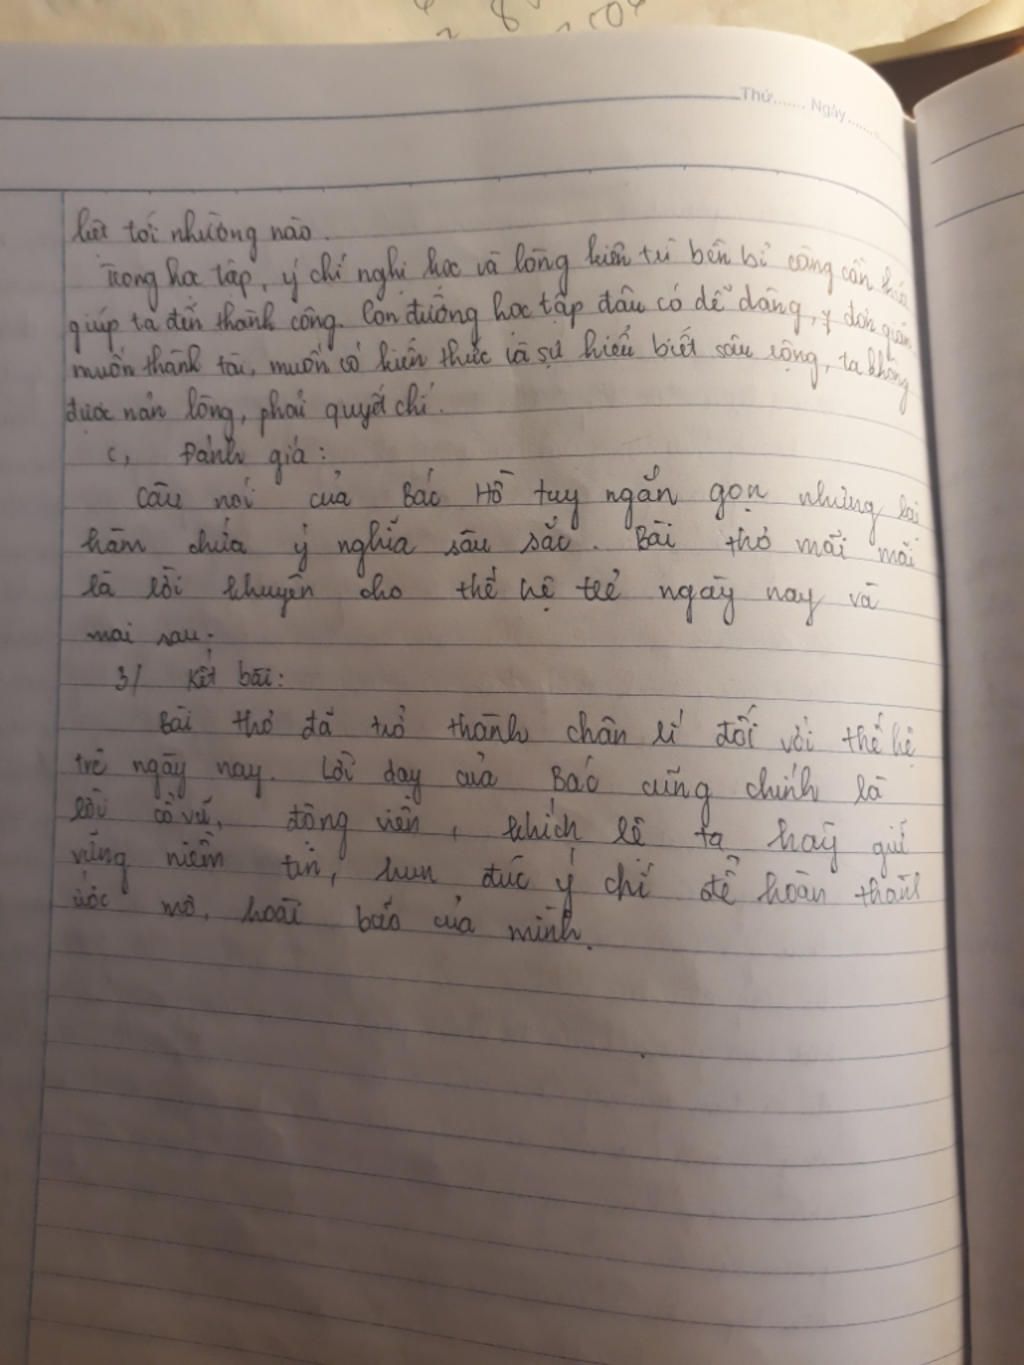 Thứ....... Ngày.......
biết tới nhường nào.
Trong học tập, ý chí nghị lực và lòng kiên trì bền bỉ càng cần thiết
giúp ta đến thành công. Con đường học tập đâu có dễ dàng, đơn giản
muốn thành tài, muốn có kiến thức và sự hiểu biết sâu rộng, ta không
được nản lòng, phải quyết chí.
c, Đánh giá:
Câu nói của Bác Hồ tuy ngắn gọn nhưng lại
hàm chứa ý nghĩa sâu sắc. Bài thơ mãi mãi
là lời khuyên cho thế hệ trẻ ngày nay và
mai sau.
3/ Kết bài:
Bài thơ đã trở thành chân lí đối với thế hệ
trẻ ngày nay. Lời dạy của Bác cũng chính là
lời cổ vũ, động viên, khích lệ ta hãy giữ
vững niềm tin, hun đúc ý chí để hoàn thành
ước mơ, hoài bão của mình.